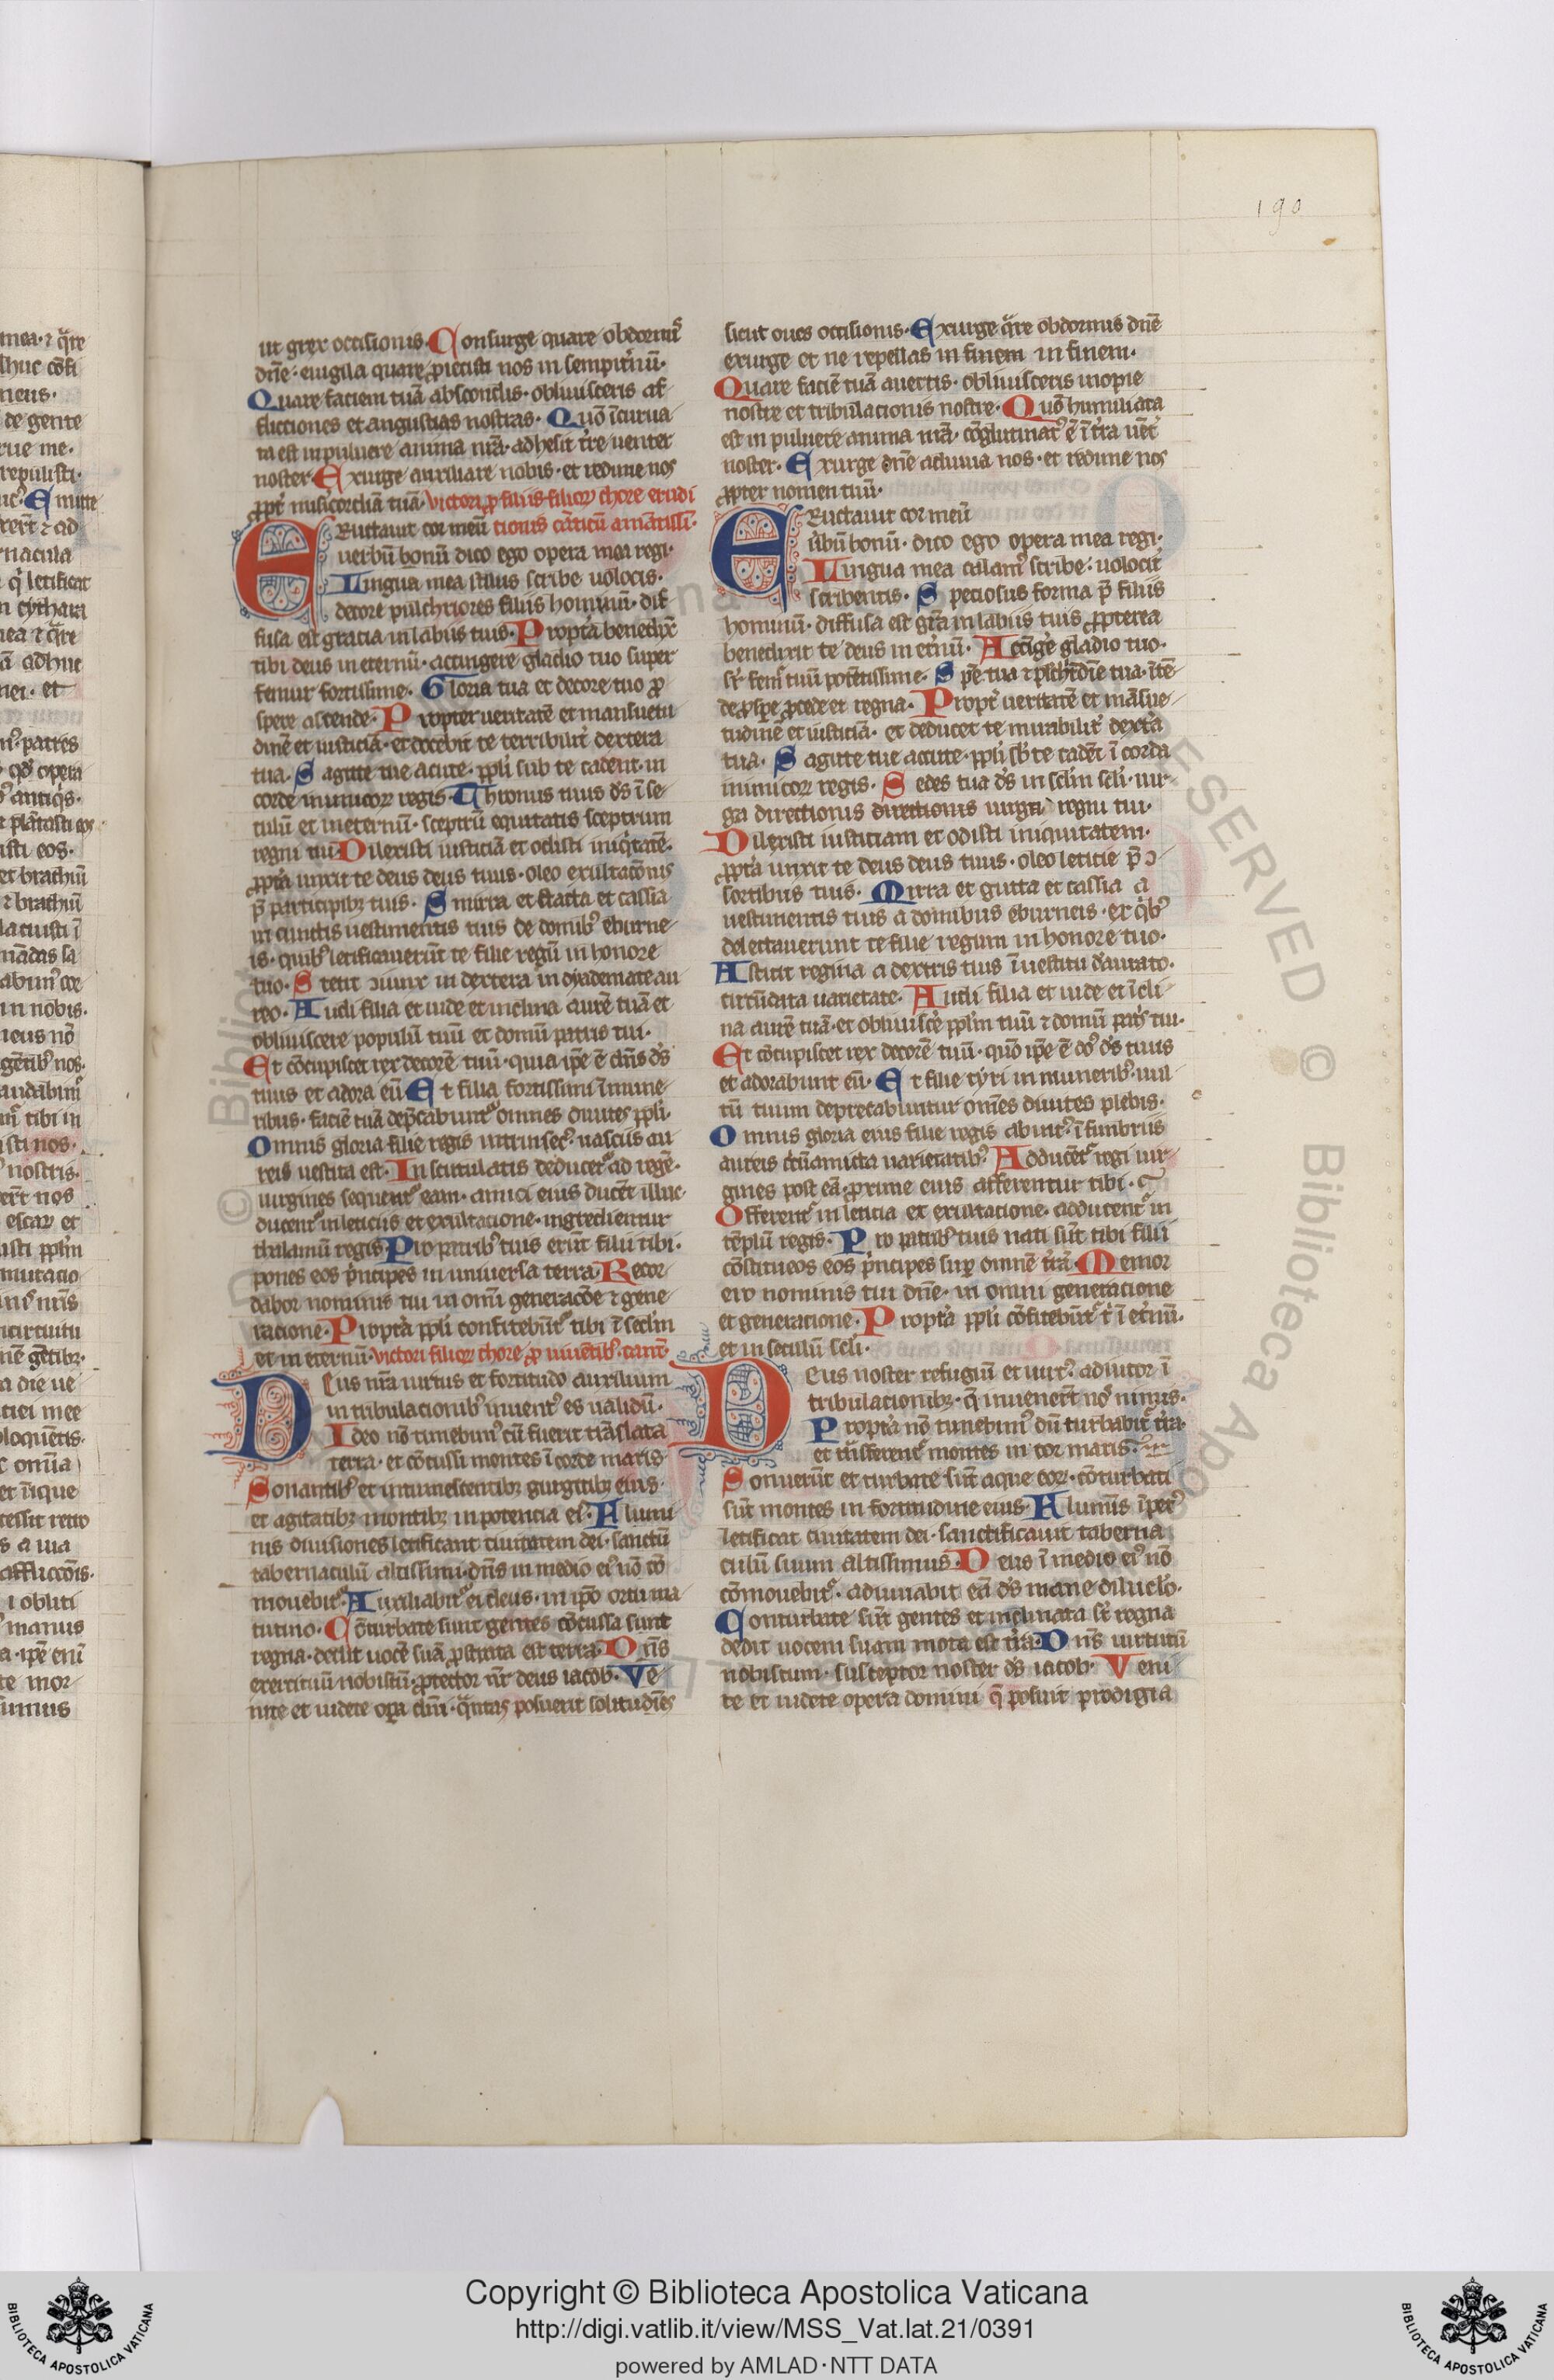 190
ut grex occisionis. Consurge quare obdormis
dñe. euigila quare proiecisti nos in sempitnũ.
Quare faciem tuã abscondis. obliuisceris af
flictiones et angustias nostras. Quõ ĩcurua
ta est in puluere anima nrã. adhesit tre uenter
noster. Exurge auxiliare nobis. et redime nos
ppt misicordiã tuã. Victori p filiis filior chore erudi
Eructauit cor meũ tionis cãticũ amãtissi.
uerbũ bonũ dico ego opera mea regi.
Lingua mea stilus scribe uolocis.
decore pulchriores filiis hominũ. dif
fusa est gracia in labiis tuis. Propta benedix
tibi deus in eternũ. accingere gladio tuo super
femur fortissime. Gloria tua et decore tuo p
spere ascende. Propter ueritatẽ et mansuetu
dinẽ et iusticiã. et docebit te terribilit dextera
tua. Sagitte tue acute. ppli sub te cadent. in
corde inimicor regis. Thronus tuus ds ĩ se
culũ et in eternũ. sceptrũ equitatis sceptrum
regni tui. Dilexisti iusticiã et odisti iniqtatẽ.
ppta unxit te deus deus tuus. oleo exultacõnis
p participib tuis. Smirra et stacta et cassia
in cunctis uestimentis tuis de domib eburne
is. quib letificauerũt te filie regũ in honore
tuo. Stetit ɔiunx in dextera in dyademate au
reo. Audi filia et uide et inclina aurẽ tuã et
obliuiscere populũ tuũ et domũ patris tui.
Et cõcupiscet rex decorẽ tuũ. quia ipe ẽ dñs ds
tuus et adora eũ. Et filia fortissimi ĩ mune
ribus. faciẽ tuã depcabunt omnes diuites ppli.
Omnis gloria filie regis intrinsec. uasciis au
reis uestita est. In scutulatis ducet ad regẽ.
uirgines sequent eam. amici eius ducẽt illuc.
ducent in leticiis et exultacione. ingredientur
thalamũ regis. Pro patrib tuis erũt filii tibi.
pones eos pncipes in uniuersa terra. Recor
dabor nominis tui in omi generacõe et gene
racione. Propta ppli confitebũt tibi ĩ seclm
et in eternũ. Victori filior chore p iuuẽtib. cant.
Deus nrã uirtus et fortitudo auxilium
in tribulacionib inuent es ualidũ.
Ideo nõ timebim cũ fuerit trãslata
terra. et cõcussi montes ĩ corde maris
Sonantib et intumescentib gurgitib eius.
et agitatib montib in potencia ei. Flumi
nis diuisiones letificant ciuitatem dei. sanctũ
tabernaculũ altissimi. dñs in medio ei nõ cõ
mouebit. Auxiliabit ei deus. in ipo ortu ma
tutino. Cõturbate sunt gentes cõcussa sunt
regna. dedit uocẽ suã pstrata est terra. Dñs
exercituũ nobiscũ. ptector nr deus iacob. Ve
nite et uidete opa dñi. qntas posuerit solitudines
sicut oues occisionis. Exurge qre obdormis dñe
exurge et ne repellas in finem in finem.
Quare faciẽ tuã auertis. obliuisceris inopie
nostre et tribulacionis nostre. Quõ humiliata
est in puluere anima nrã. cõglutinat ẽ ĩ tra uet
noster. Exurge dñe adiuua nos. et redime nos
ppter nomen tuũ.
Eructauit cor meũ
ubũ bonũ. dico ego opera mea regi.
Lingua mea calam scribe. uolocit
scribentis. Speciosus forma p filiis
hominũ. diffusa est gra in labiis tuis pterea
benedixit te deus in etnũ. Accige gladio tuo.
sr fem tuũ potẽtissime. Spe tua et pulchdĩe tua. ĩtẽ
de pspe pcede et regna. Propt ueritatẽ et mãsue
tudinẽ et iusticiã. et deducet te mirabilit dextra
tua. Sagitte tue acute. ppli sb te cadẽt ĩ corda
inimicor regis. Sedes tua ds in sclm scli. uir
ga directionis directionis uirga regni tui.
Dilexisti iusticiam et odisti iniquitatem.
ppta unxit te deus deus tuus. oleo leticie p ɔ
sortibus tuis. Mirra et gutta et cassia a
uestimentis tuis a domibus eburneis. ex qib
delectauerunt te filie regum in honore tuo.
Astitit regina a dextris tuis ĩ uestitu daurato.
circũdata uarietate. Audi filia et uide et ĩcli
na aurẽ tuã. et obliuisce pplm tuũ et domũ patis tui.
Et cõcupiscet rex decorẽ tuũ. quõ ipe ẽ do ds tuus
et adorabunt eũ. Et filie tyri in munerib. uul
tũ tuum deprecabuntur omẽs diuites plebis.
Omnis gloria eius filie regis abunt. ĩ fimbriis
aureis circũamicta uarietatib. Adducẽt regi uir
gines post eã. pxime eius afferentur tibi.
Offerent in leticia et exultacione. adducent in
tẽplũ regis. Pro patrib tuis nati sũt tibi filii
cõstitues eos pncipes sup omnẽ trã. Memor
ero nominis tui dñe. in omni generacione
et generacione. Propta ppli cõfitebũt t ĩ etnũ.
et in seculũ scli.
Deus noster refugiũ et uirt. adiutor ĩ
tribulacionib. q inuenert nos nimis.
Propta nõ timebim dũ turbabit tra.
et trãsferent montes in cor maris.
Sonuerũt et turbate sũt aque eor. cõturbati
sũt montes in fortitudine eius. Fluminis ipet
letificat ciuitatem dei. sanctificauit taberna
culũ suum altissimus. Deus ĩ medio ei nõ
cõmouebit. adiuuabit eã ds mane diluclo.
Conturbate sũt gentes et inclinata st regna
dedit uocem suam mota est tra. Dñs uirtutũ
nobiscum. susceptor noster ds iacob. Veni
te et uidete opera domini q posuit prodigia
Copyright © Biblioteca Apostolica Vaticana
http://digi.vatlib.it/view/MSS_Vat.lat.21/0391
powered by AMLAD·NTT DATA
BIBLIOTECA APOSTOLICA VATICANA
BIBLIOTECA APOSTOLICA VATICANA